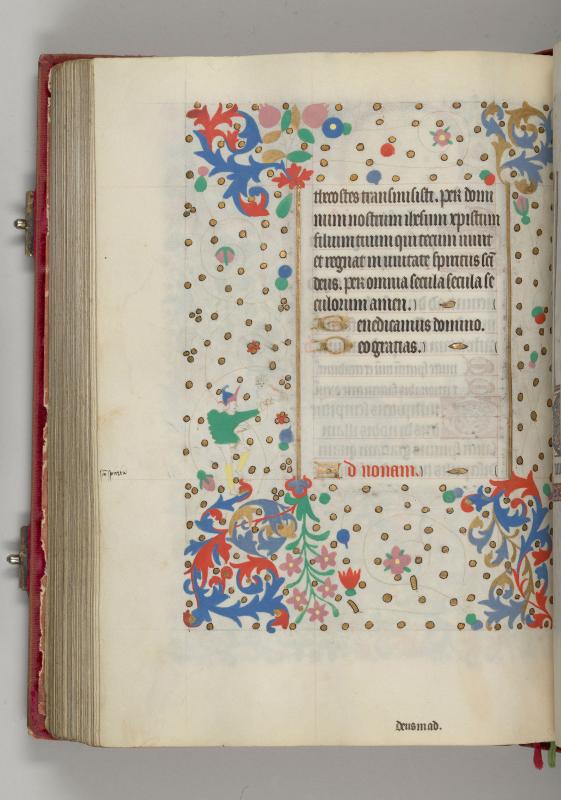 thro eſtes tranſmiſiſti. per domi
num noſtrum iheſum xp̄iſtum
filium tuum qui tecum viuit
et regnat in vnitate ſpiritus ſcī
deus. per omnia ſecula ſecula ſe
culorum amen.
Benedicamus domino.
Deo gratias.
Ad nonam.
deus in ad.